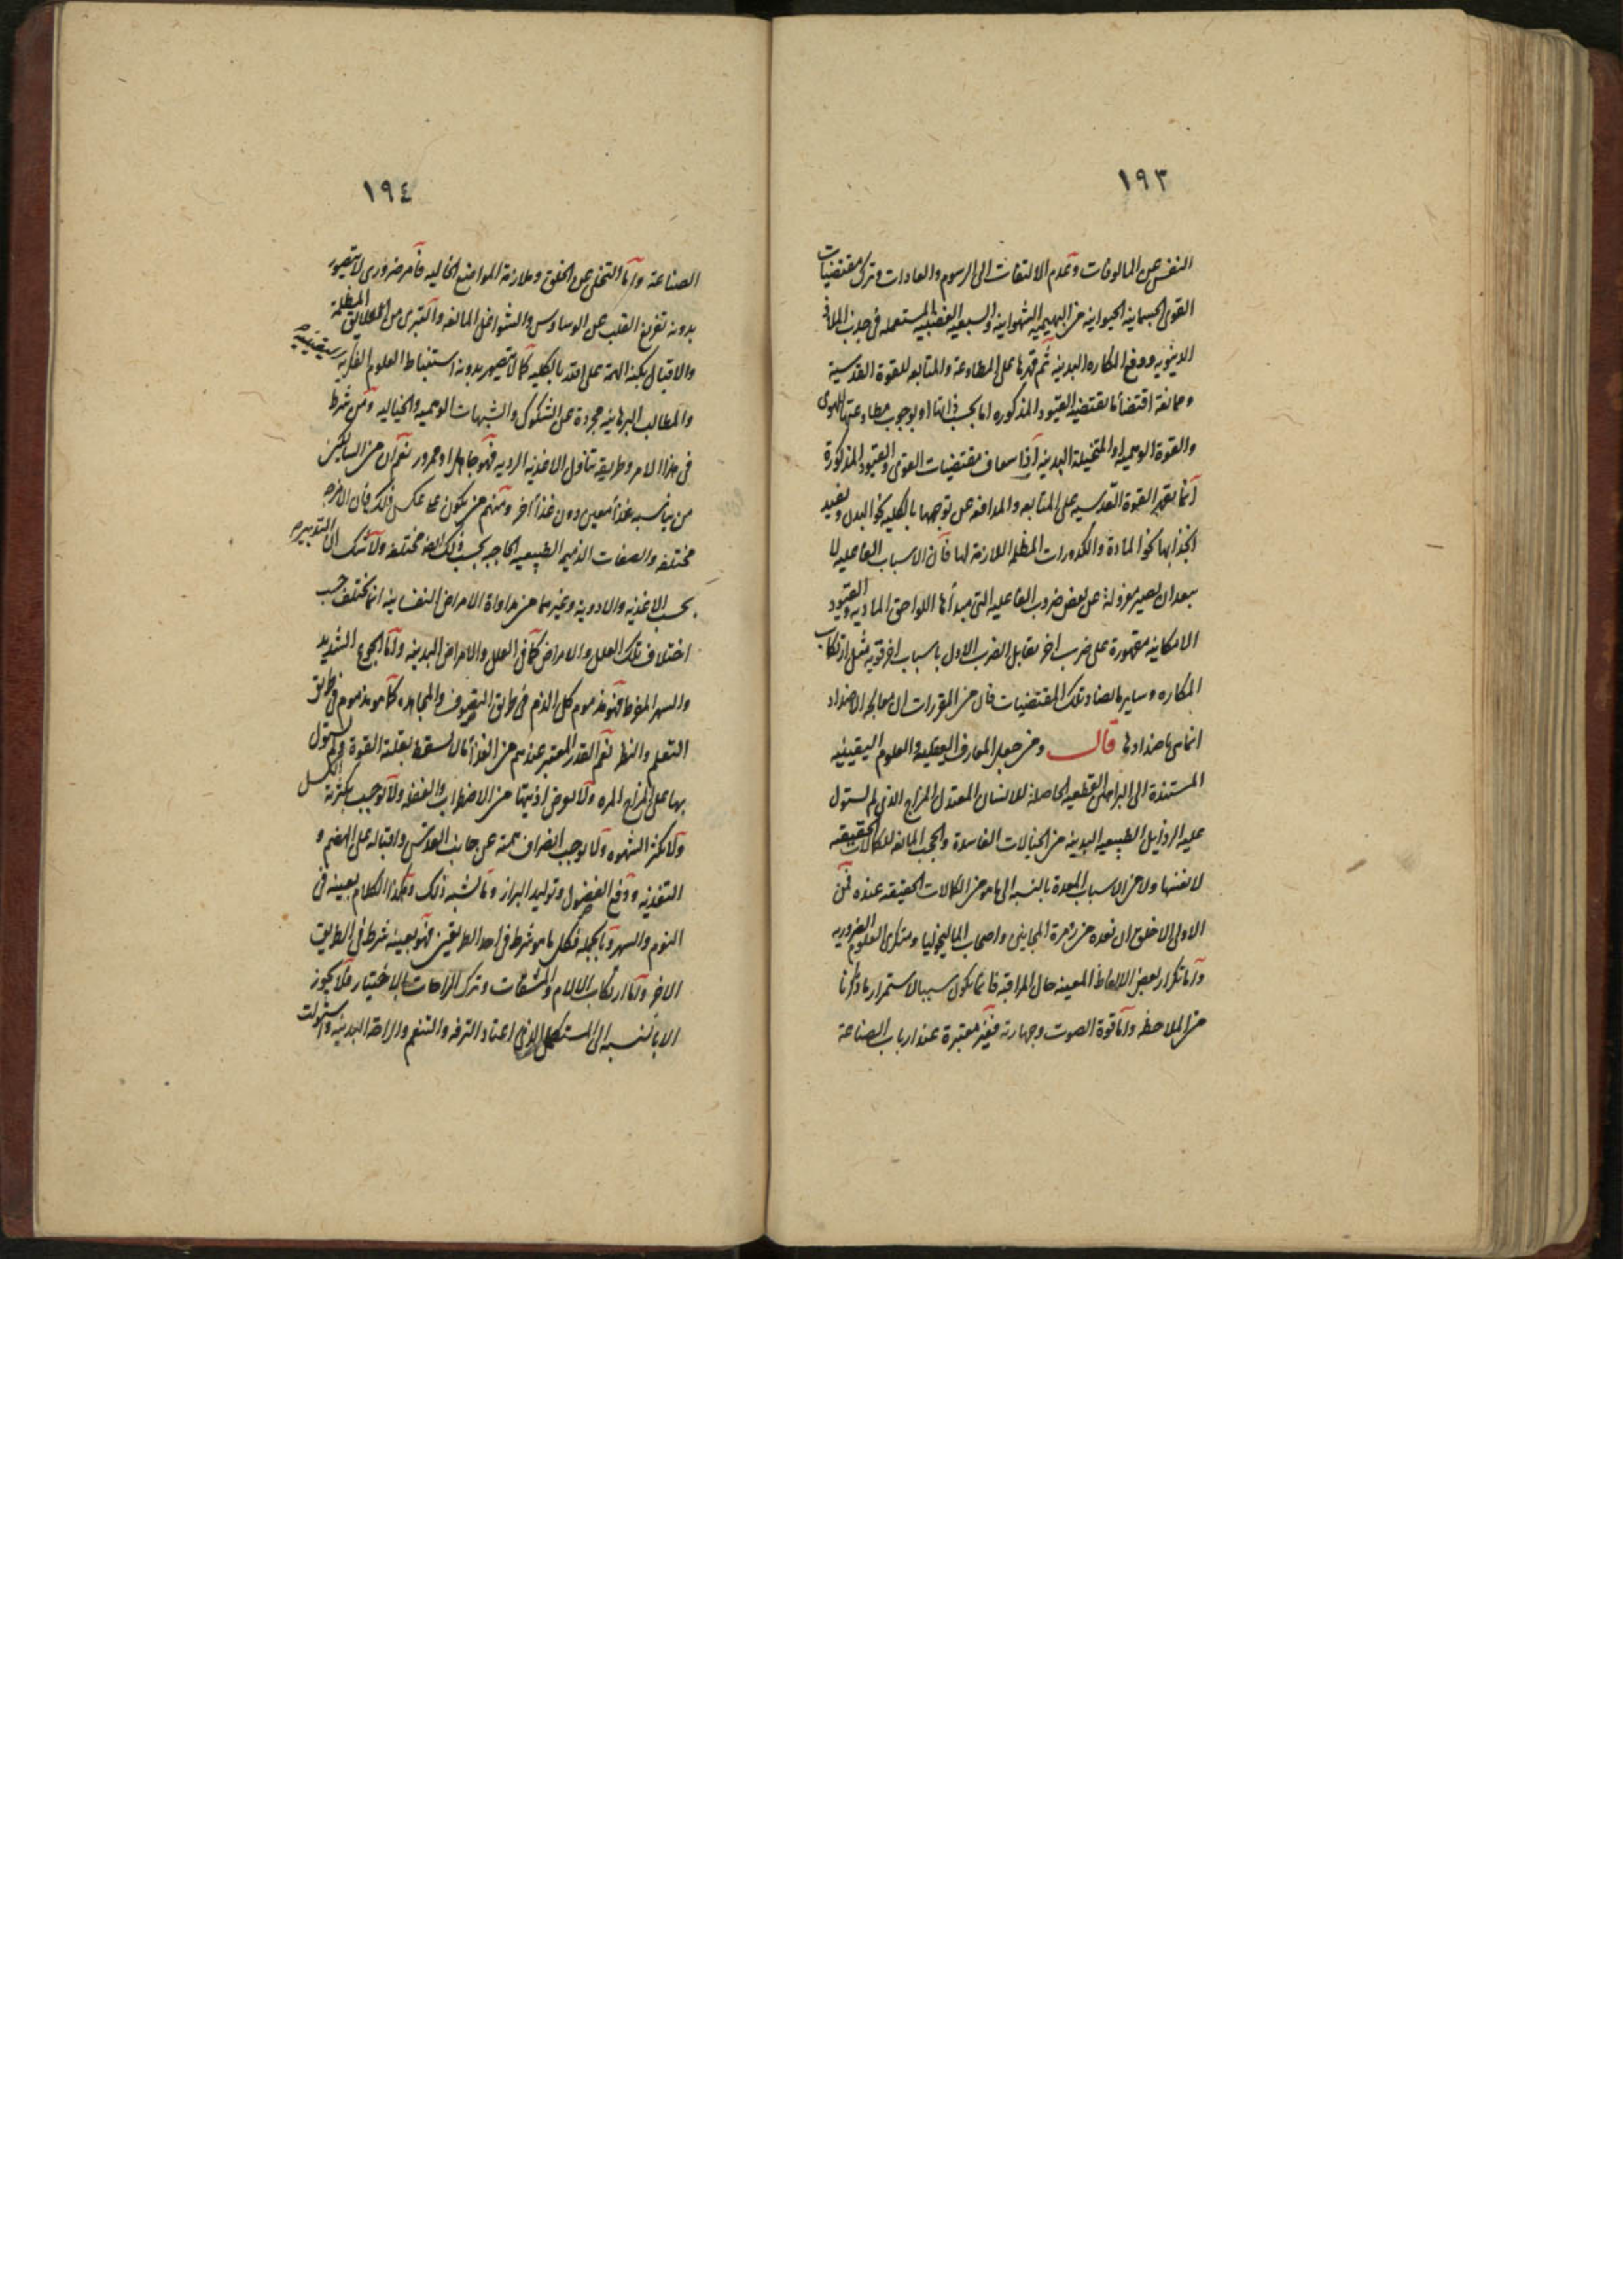 ١٩٣
النفس عن المالوفات وعدم الالتفات الى الرسوم والعادات وترك مقتضيات
القوى الجسمانية الحيوانية من البهيمية الشهوانية والسبعية الغضبية المستعملة فى جذب الملاذ
الدنيويه ودفع المكاره البدنية ثم قهرها على المطاوعة والمتابعه للقوة القدسية
وممانعة اقتضائها لمقتضيات القيود المذكوره اما بحسب ذاتها او بوجوب مطاوعتها للهوى
والقوة الوهمية او المتخيلة البدنية اذ اسعاف مقتضيات القوى والقيود المذكورة
انما يقهر القوة القدسيه على المتابعه والمدافعه عن توجهها بالكليه نحو البدن ويفيد
انجذابها نحو المادة والكدورات المظلمه اللازمة لها فان الاسباب الفاعليه لا
بعد ان يصير معزولة عن بعض ضروب الفاعليه التى مبدأها اللواحق الماديه والقيود
الامكانيه مقهورة على ضرب اخر يقابل الضرب الاول باسباب اخر قويه مثل ارتكاب
المكاره وساير ما يضاد تلك المقتضيات فان من المقررات ان معالجه الاضداد
انما هى باضدادها قال ومن جعل المعارف العقليه والعلوم اليقينيه
المستندة الى البراهين القطعيه الحاصلة للانسان المعتدل المزاج الذى لم يستول
عليه الرذايل الطبيعيه البدنيه من الخيالات الفاسدة والحجب المانعه للكمالات الحقيقيه
لا نفسها ولا من الاسباب المعدة بالنسبه الى ما هو من الكمالات الحقيقه عنده فمن
الاولى الاخلق ان نعده من زمرة المجانين واصحاب الماليخوليا ومنكرى العلوم الضروريه
واما تكرار بعض الالفاظ المعينه حال المراقبه فانما يكون سببا لاستمرار ما ذكرنا
من الملاحظه واما قوة الصوت وجهارته فغير معتبرة عند ارباب الصناعة
١٩٤
الصناعة واما التخلى عن الخلق وملازمة المواضع الخاليه فامر ضرورى لا يتصور
بدونه تفريغ القلب عن الوساوس والشواغل المانعه والتبرى من العلايق المظلمة
والاقبال بكنه الهمة على الله بالكليه كما لا يتصور بدونه استنباط العلوم الفكريه اليقينيه
والمطالب البرهانيه مجردة عن الشكوك والشبهات الوهميه والخياليه ومن شرط
فى هذا الامر وطريقه تناول الاغذيه الرديه فهو جاهل او مغرور نعم ان من السالكين
من يناسبه غذاء معين دون غذاء اخر ومنهم من يكون على عكس ذلك فان الامزجه
مختلفه والصفات الذميمه الطبيعيه الحاجبه بحسب ذلك ايضا مختلفه ولا شك ان التدبير
بحسب الاغذيه والادوية وغيرهما من مداواة الامراض النفسانيه انما يختلف حسب
اختلاف تلك العلل والامراض كما فى العلل والامراض البدنيه واما الجوع الشديد
والسهر المفرط فهو مذموم كل الذم فى طريق التصوف والمجاهده كما هو مذموم فى طريق
التعلم والنظر نعم القدر المعتبر عندهم من الغذاء ما لا يسقط بقلته القوة ولم يستول
بها على المزاج المره ولا يعرض اذيتها من الاضطراب والغفله ولا يوجب بكثرته الكسل
ولا يكثر الشهوه ولا يوجب انصراف همته عن جانب القدس واقباله على الهضم و
التغذيه ودفع الفضول وتوليد البراز وما يشبه ذلك وهكذا الكلام بعينه فى
النوم والسهر وبالجمله فكل ما هو شرط فى احد الطريقين فهو بعينه شرط فى الطريق
الاخر واما ارتكاب الالام والمشقات وترك الراحات بالاختيار فلا يجوز
الا بالنسبه الى المستكمل الذى اعتاد الترفه والتنعم والراحة البدنيه واستولت